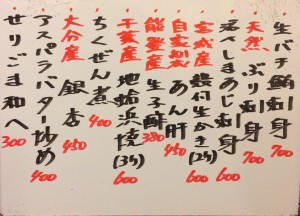 生バチ鮪刺身 700
天然 ぶり刺身 700
活〆しまあじ刺身 600
宮城産 殻付生かき(2ヶ) 600
自家製 あん肝 450
能登産 生子酢 380
千葉産 地蛤浜焼(3ヶ) 600
ちくぜん煮 400
大分産 銀杏 450
アスパラバター炒め 400
せりごま和へ 300